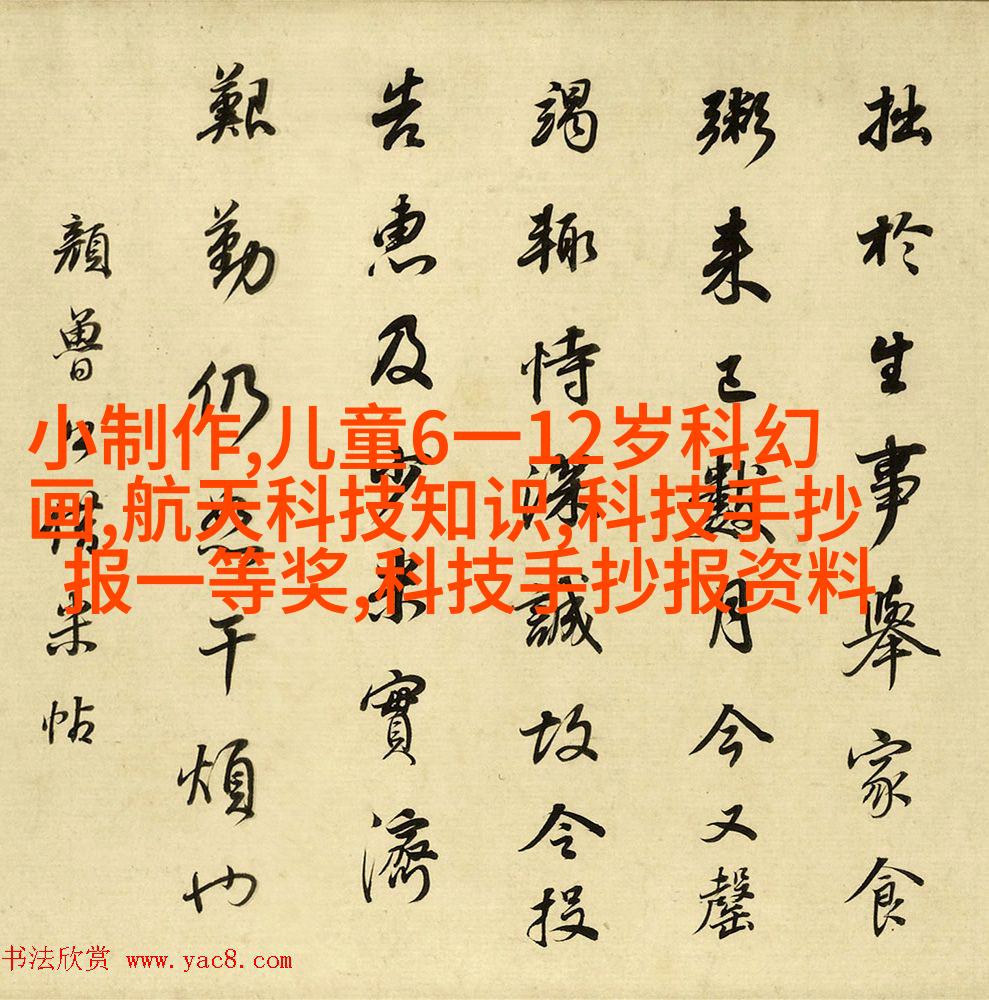 拙於生事舉家食
粥来已數月今又罄
竭輙恃深誠故令投
告惠及少米實濟
艱勤仍恕干煩也
顏魯公米帖
小制作,儿童6一12岁科幻
画,航天科技知识,科技手抄
报一等奖,科技手抄报资料
书法欣赏 www.yac8.com